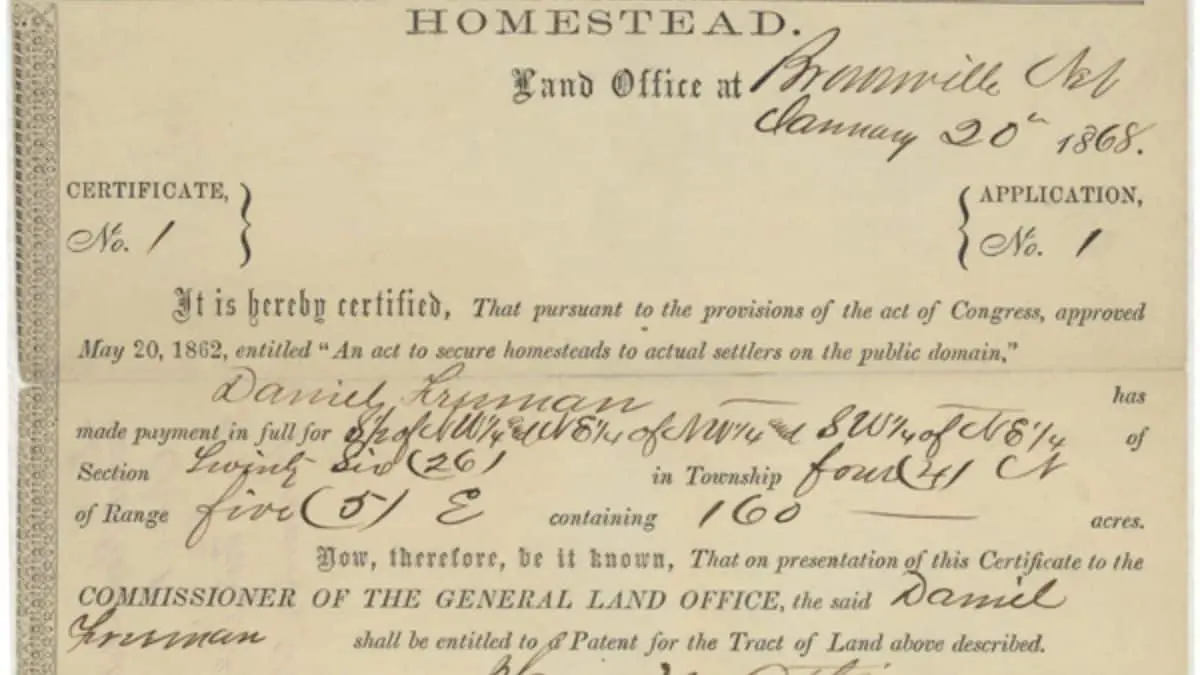 HOMESTEAD.
Land Office at Brownville Neb
January 20th 1868.
CERTIFICATE, No. 1
APPLICATION, No. 1
It is hereby certified, That pursuant to the provisions of the act of Congress, approved
May 20, 1862, entitled “An act to secure homesteads to actual settlers on the public domain,”
Daniel Freeman has
made payment in full for S½ of NW¼ and NE¼ of NW¼ and SW¼ of NE¼ of
Section Twenty Six (26) in Township four (4) N
of Range five (5) E containing 160 acres.
Now, therefore, be it known, That on presentation of this Certificate to the
COMMISSIONER OF THE GENERAL LAND OFFICE, the said Daniel
Freeman shall be entitled to a Patent for the Tract of Land above described.